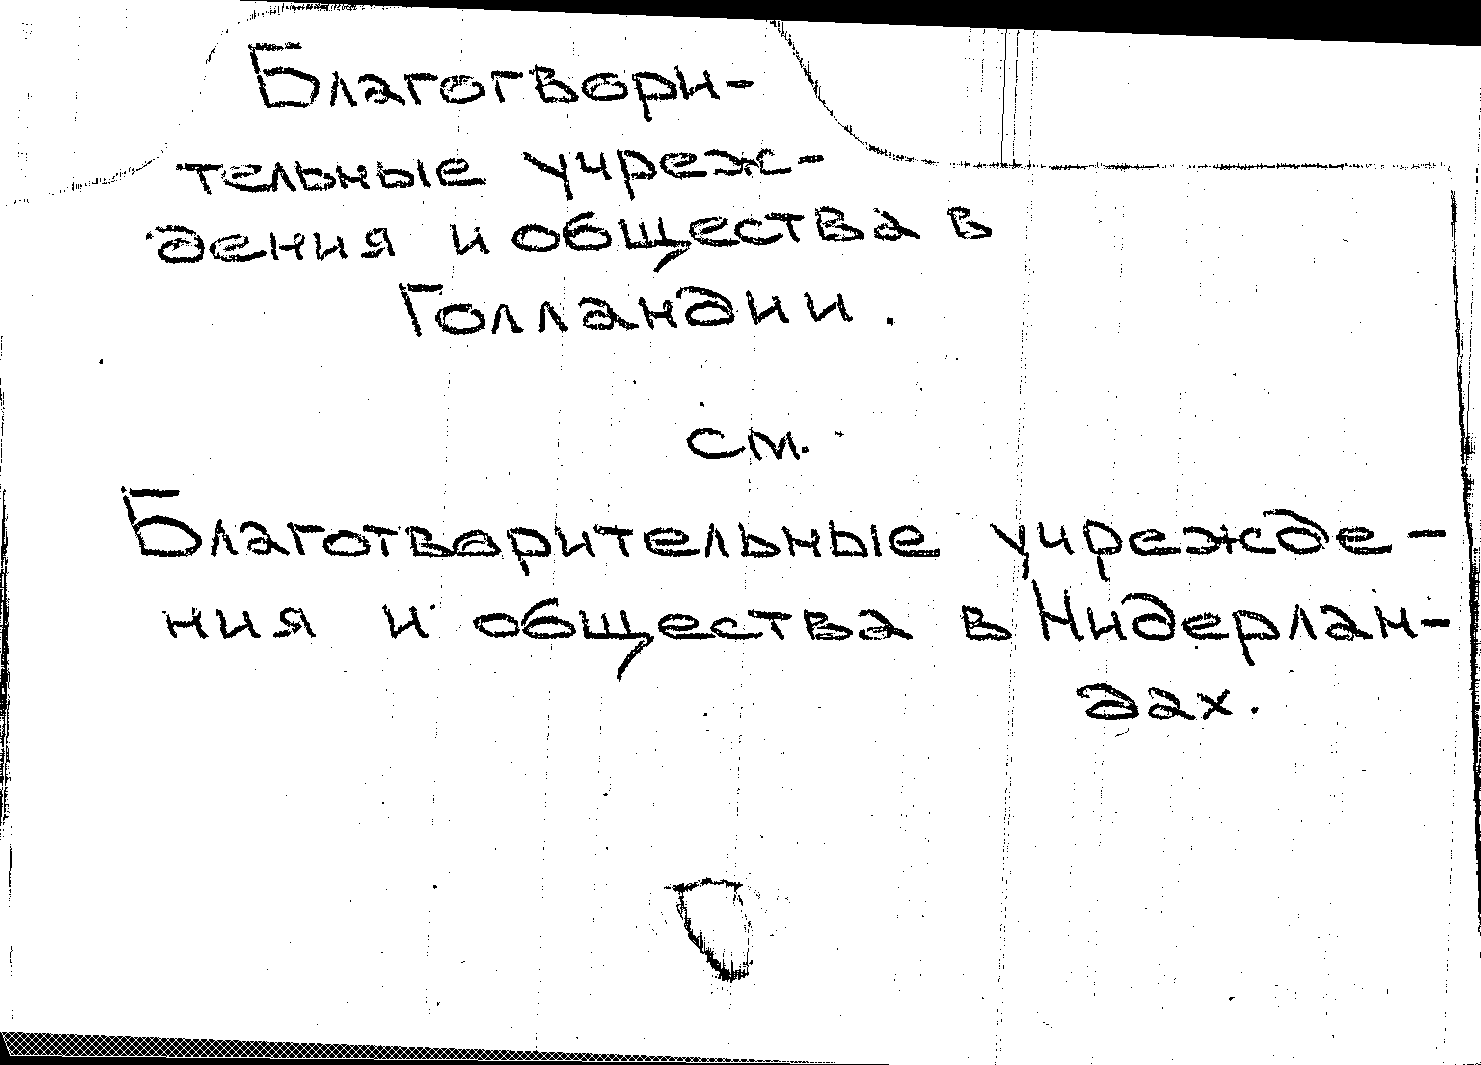 Благотвори-
тельные учреж-
дения и общества в
Голландии.
см.
Благотворительные учрежде-
ния и общества в Нидерлан-
дах.